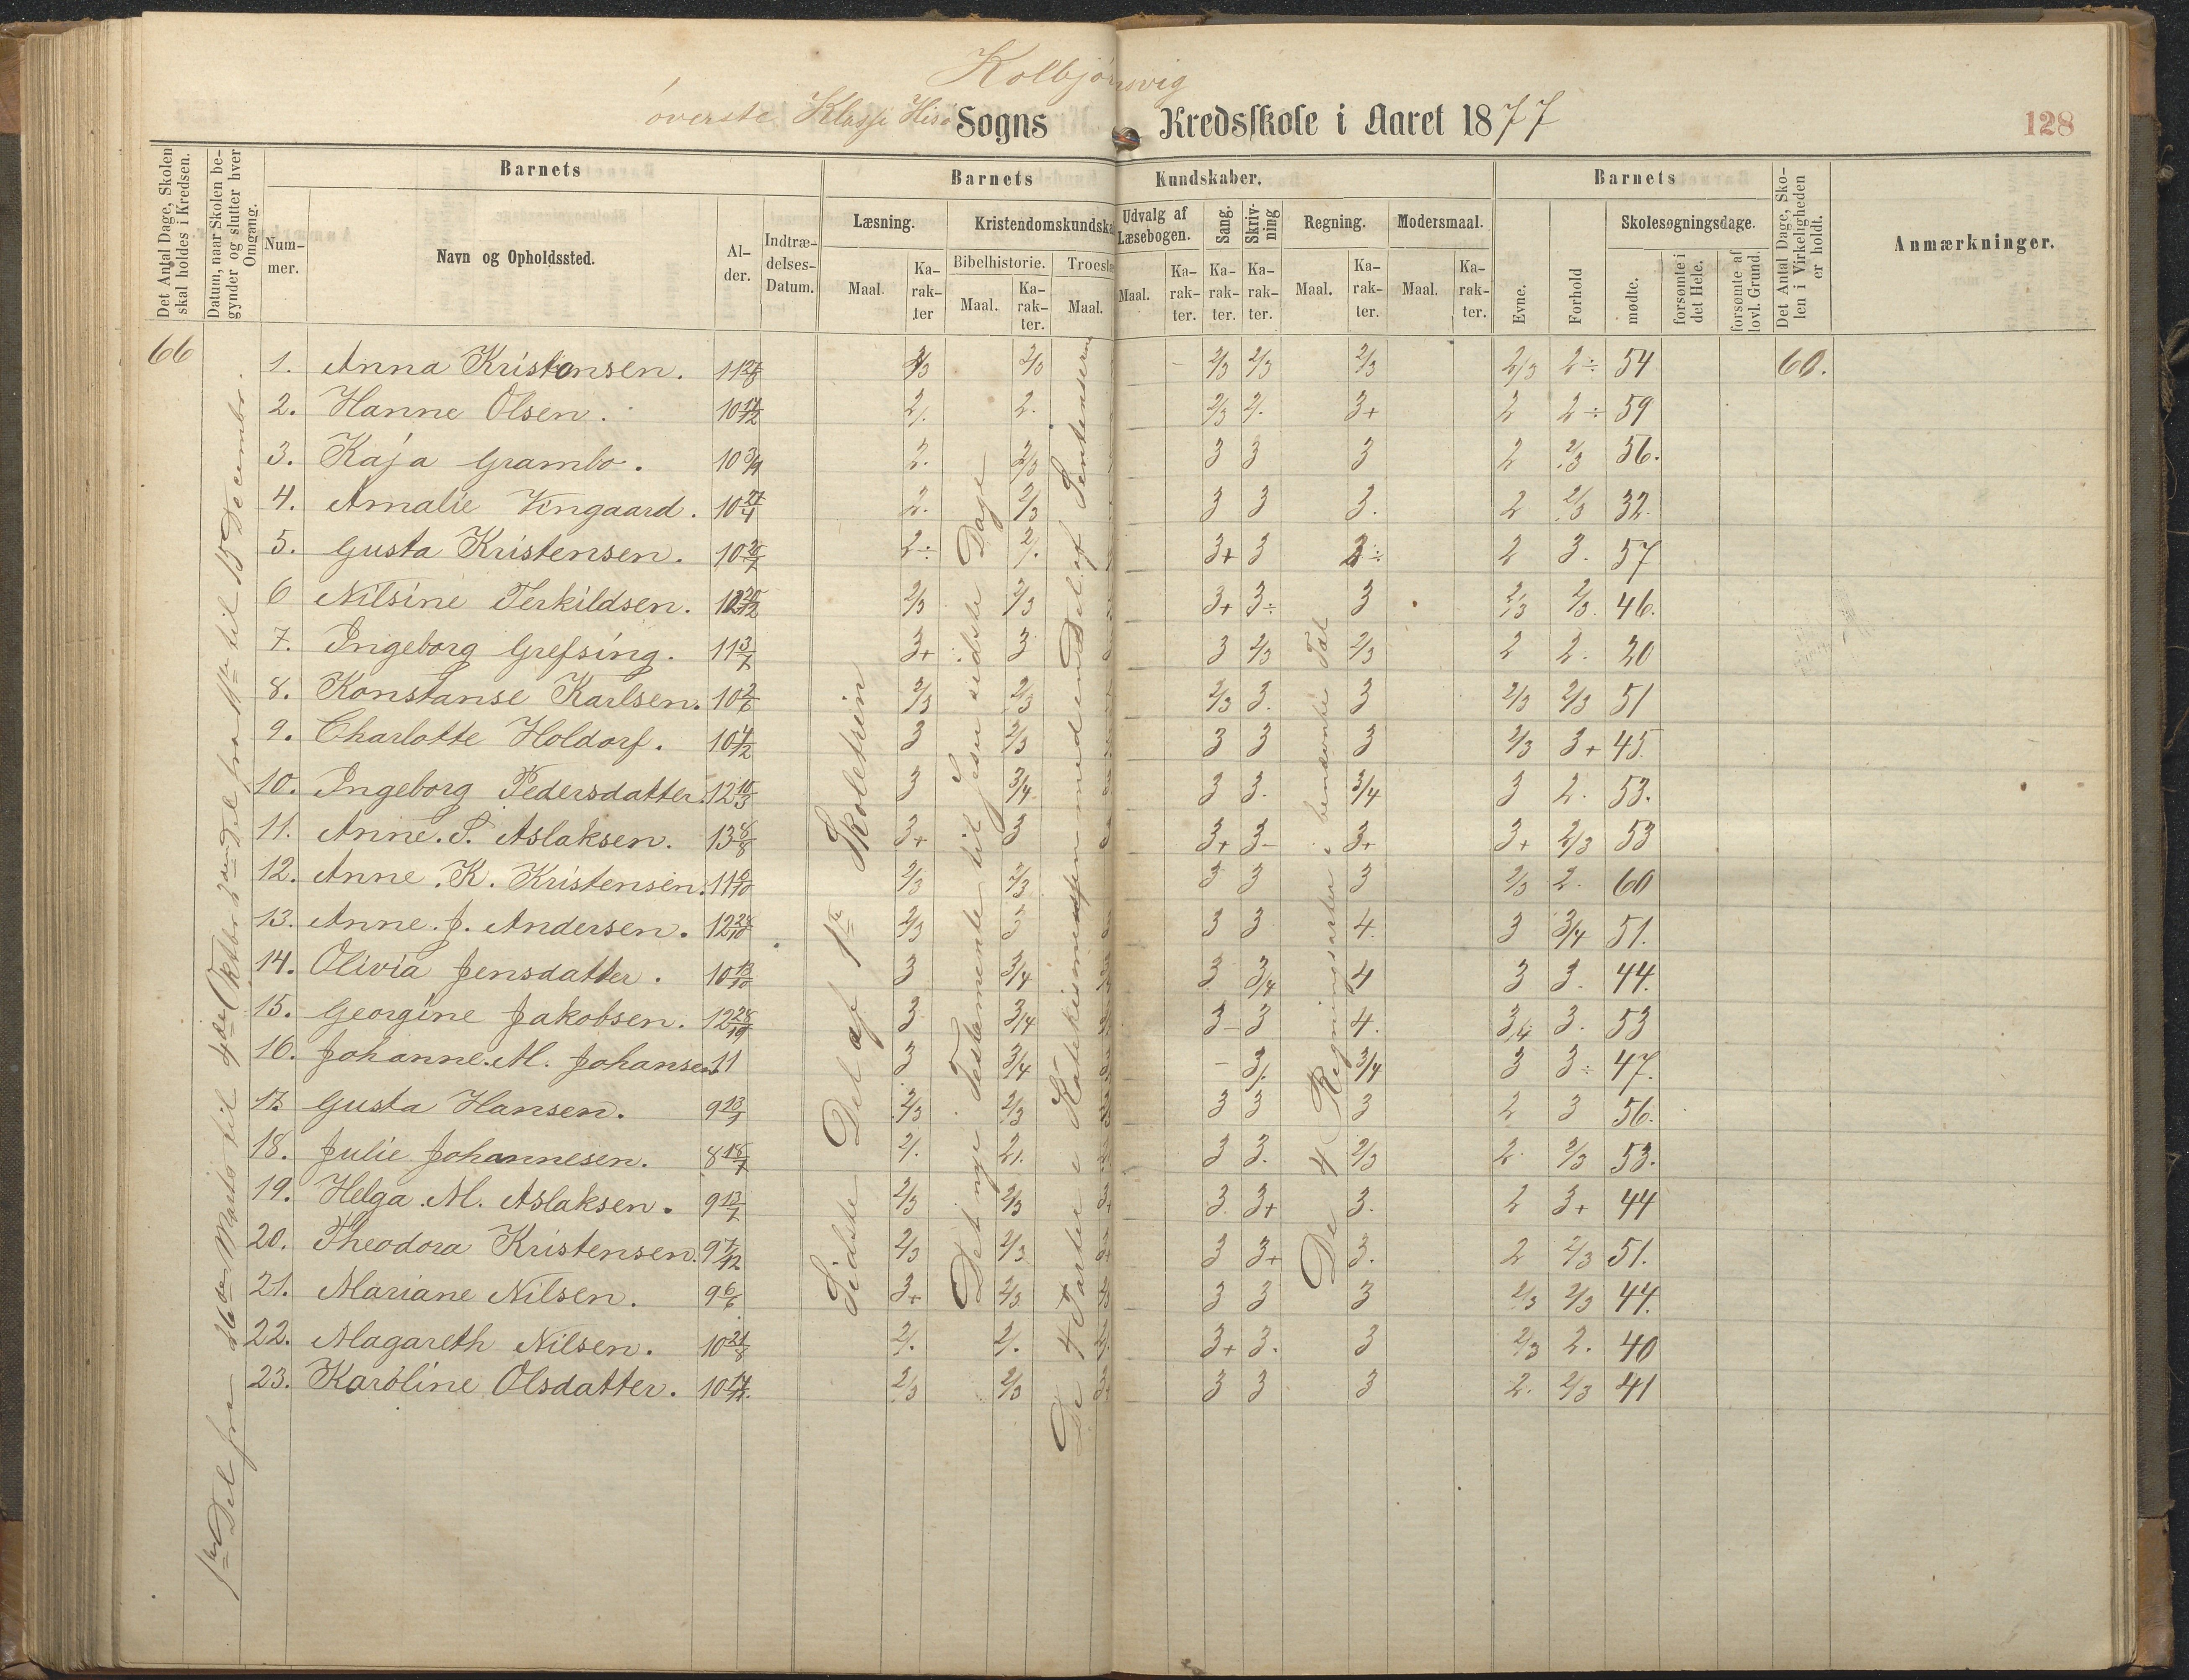 Kolbjørnsvig
øverste Klasse Hisø Sogns Kredsskole i Aaret 1877
128
Det Antal Dage, Skolen skal holdes i Kredsen.
Datum, naar Skolen begynder og slutter hver Omgang.
Barnets
Barnets Kundskaber.
Barnets
Det Antal Dage, Skolen i Virkeligheden er holdt.
Anmærkninger.
Nummer.
Navn og Opholdssted.
Alder.
Indtrædelses-Datum.
Læsning.
Kristendomskundska
Udvalg af Læsebogen.
Sang.
Skrivning
Regning.
Modersmaal.
Evne.
Forhold
Skolesøgningsdage.
Bibelhistorie.
Troeslæ
Maal.
Karakter
Maal.
Karakter.
Maal.
Maal.
Karakter.
Karakter.
Karakter.
Maal.
Karakter.
Maal.
Karakter.
mødte.
forsømte i det Hele.
forsømte af lovl. Grund.
66
1ste Del fra 26de Marts til 4de Oktbr 2den Del fra 11te til 15de December.
Sidste Del af 1ste Skoletrin
Det nye Testamente til Jesu sidste Dage
De 4 Parter i Katekismen med en Del af Sentenserne
De 4 Regningsarter i benævnte Tal
1. Anna Kristensen. 2/3 2/3 2/3 2/3 2/3 2/3 2÷ 54 60.
2. Hanne Olsen. 2. 2. 2/3 2. 3+ 2 2÷ 59
3. Kaja Grambo. 10 3/9 2. 2/3 3 3 3 2 2/3 56.
4. Amalie Vingaard. 10 27/4 2. 2/3 3 3 3. 2 2/3 32.
5. Gusta Kristensen. 2÷ 2. 3+ 3 2 3. 57
6 Nilsine Terkildsen. 2/3 2/3 3+ 3÷ 3 2/3 2/3. 46.
7. Ingeborg Grefsing. 11 3/7 3+ 3 3 2/3 2/3 2 2. 20
8. Konstanse Karlsen. 10 2/6 2/3 2/3 2/3 3. 3 2/3 2/3 51
9. Charlotte Holdorf. 10 4/12 3 2/3 3 3 3 2/3 3+ 45.
10. Ingeborg Pedersdatter. 12 10/3 3 3/4 3 3. 3/4 3 2. 53.
11. Anne. P. Aslaksen. 13 8/8 3+ 3 3+ 3- 3+ 3+ 2/3 53
12. Anne. K. Kristensen. 2/3 2/3 3 3 3 2/3 2. 60
13. Anne. J. Andersen. 12 28/10 2/3 3 3 3 4. 3 3/4 51.
14. Olivia Jensdatter. 10 13/10 3 3/4 3 3/4 4 3 3. 44.
15. Georgine Jakobsen. 3 3/4 3- 3 4. 3/4 3. 53
16. Johanne. M. Johansen 11 3 3/4 - 3. 3/4 3 3÷ 47.
17. Gusta Hansen. 2/3 2/3 3 3 3 2 3 56.
18. Julie Johannesen. 8 18/7 2. 2. 3 3. 2/3 2. 2/3 53.
19. Helga. M. Aslaksen. 9 13/7 2/3 2/3 3. 3+ 3. 2 3+ 44
20. Theodora Kristensen. 9 7/12 2/3 2/3 3 3+ 3. 2 2/3 51.
21. Mariane Nilsen. 9 6/6 3+ 2/3 3 3 3 2/3 2/3 44.
22. Magareth Nilsen. 10 21/8 2. 2. 3+ 3. 3 2/3 2. 40
23. Karoline Olsdatter. 2/3 2/3 3 3 3 2. 2/3 41